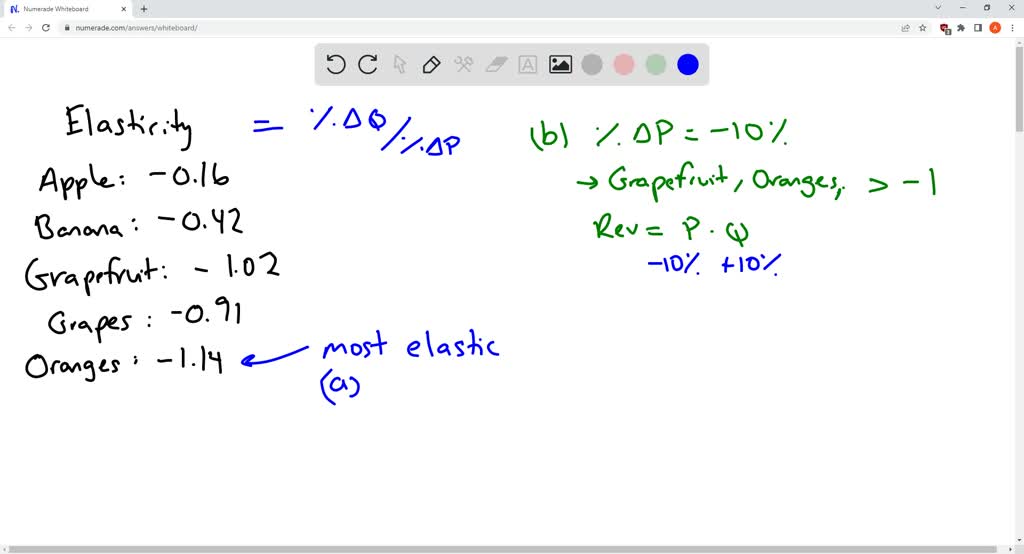 Numerade Whiteboard
numerade.com/answers/whiteboard/
Elasticity = %ΔQ/%ΔP
Apple: -0.16
Banana: -0.42
Grapefruit: -1.02
Grapes: -0.91
Oranges: -1.14
most elastic
(a)
(b) %ΔP = -10%
→ Grapefruit, Oranges, > -1
Rev = P · Q
-10% +10%